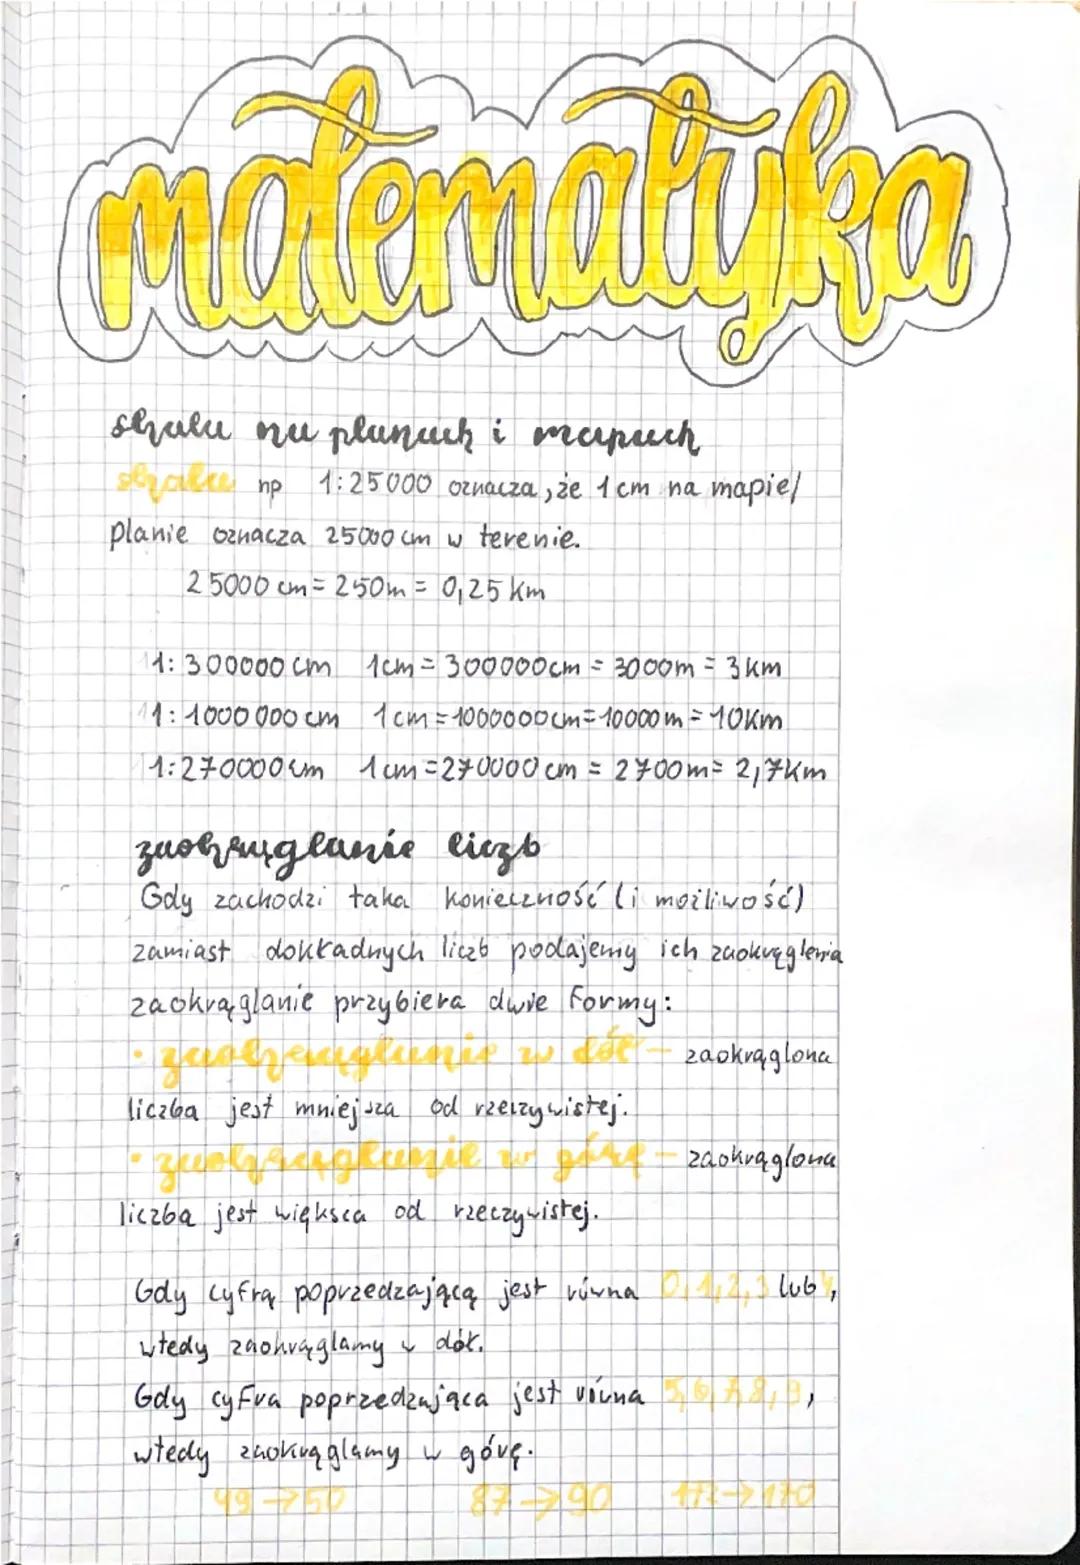 matematyka
skala na planach i mapach
skala np 1:25000 oznacza, że 1cm na mapie/
planie oznacza 25000cm w terenie.
25000 cm = 250m = 0,25 km
1:300000 cm 1cm = 300000cm = 3000m = 3km
1:1000 000 cm 1cm = 1000000cm = 10000m = 10km
1:270000cm 1cm = 270000 cm = 2700m = 2,7km
zaokrąglanie liczb
Gdy zachodzi taka konieczność (i możliwość)
zamiast dokładnych liczb podajemy ich zaokrąglenia
zaokrąglanie przybiera dwie formy:
• zaokrąglanie w dół - zaokrąglona
liczba jest mniejsza od rzeczywistej.
• zaokrąglanie w górę - zaokrąglona
liczba jest więksca od rzeczywistej.
Gdy cyfrą poprzedzającą jest równa 0,1,2,3 lub 4,
wtedy zaokrąglamy w dół.
Gdy cyfra poprzedzająca jest równa 5,6,7,8,9,
wtedy zaokrąglamy w górę.
49→50 87→90 172→170